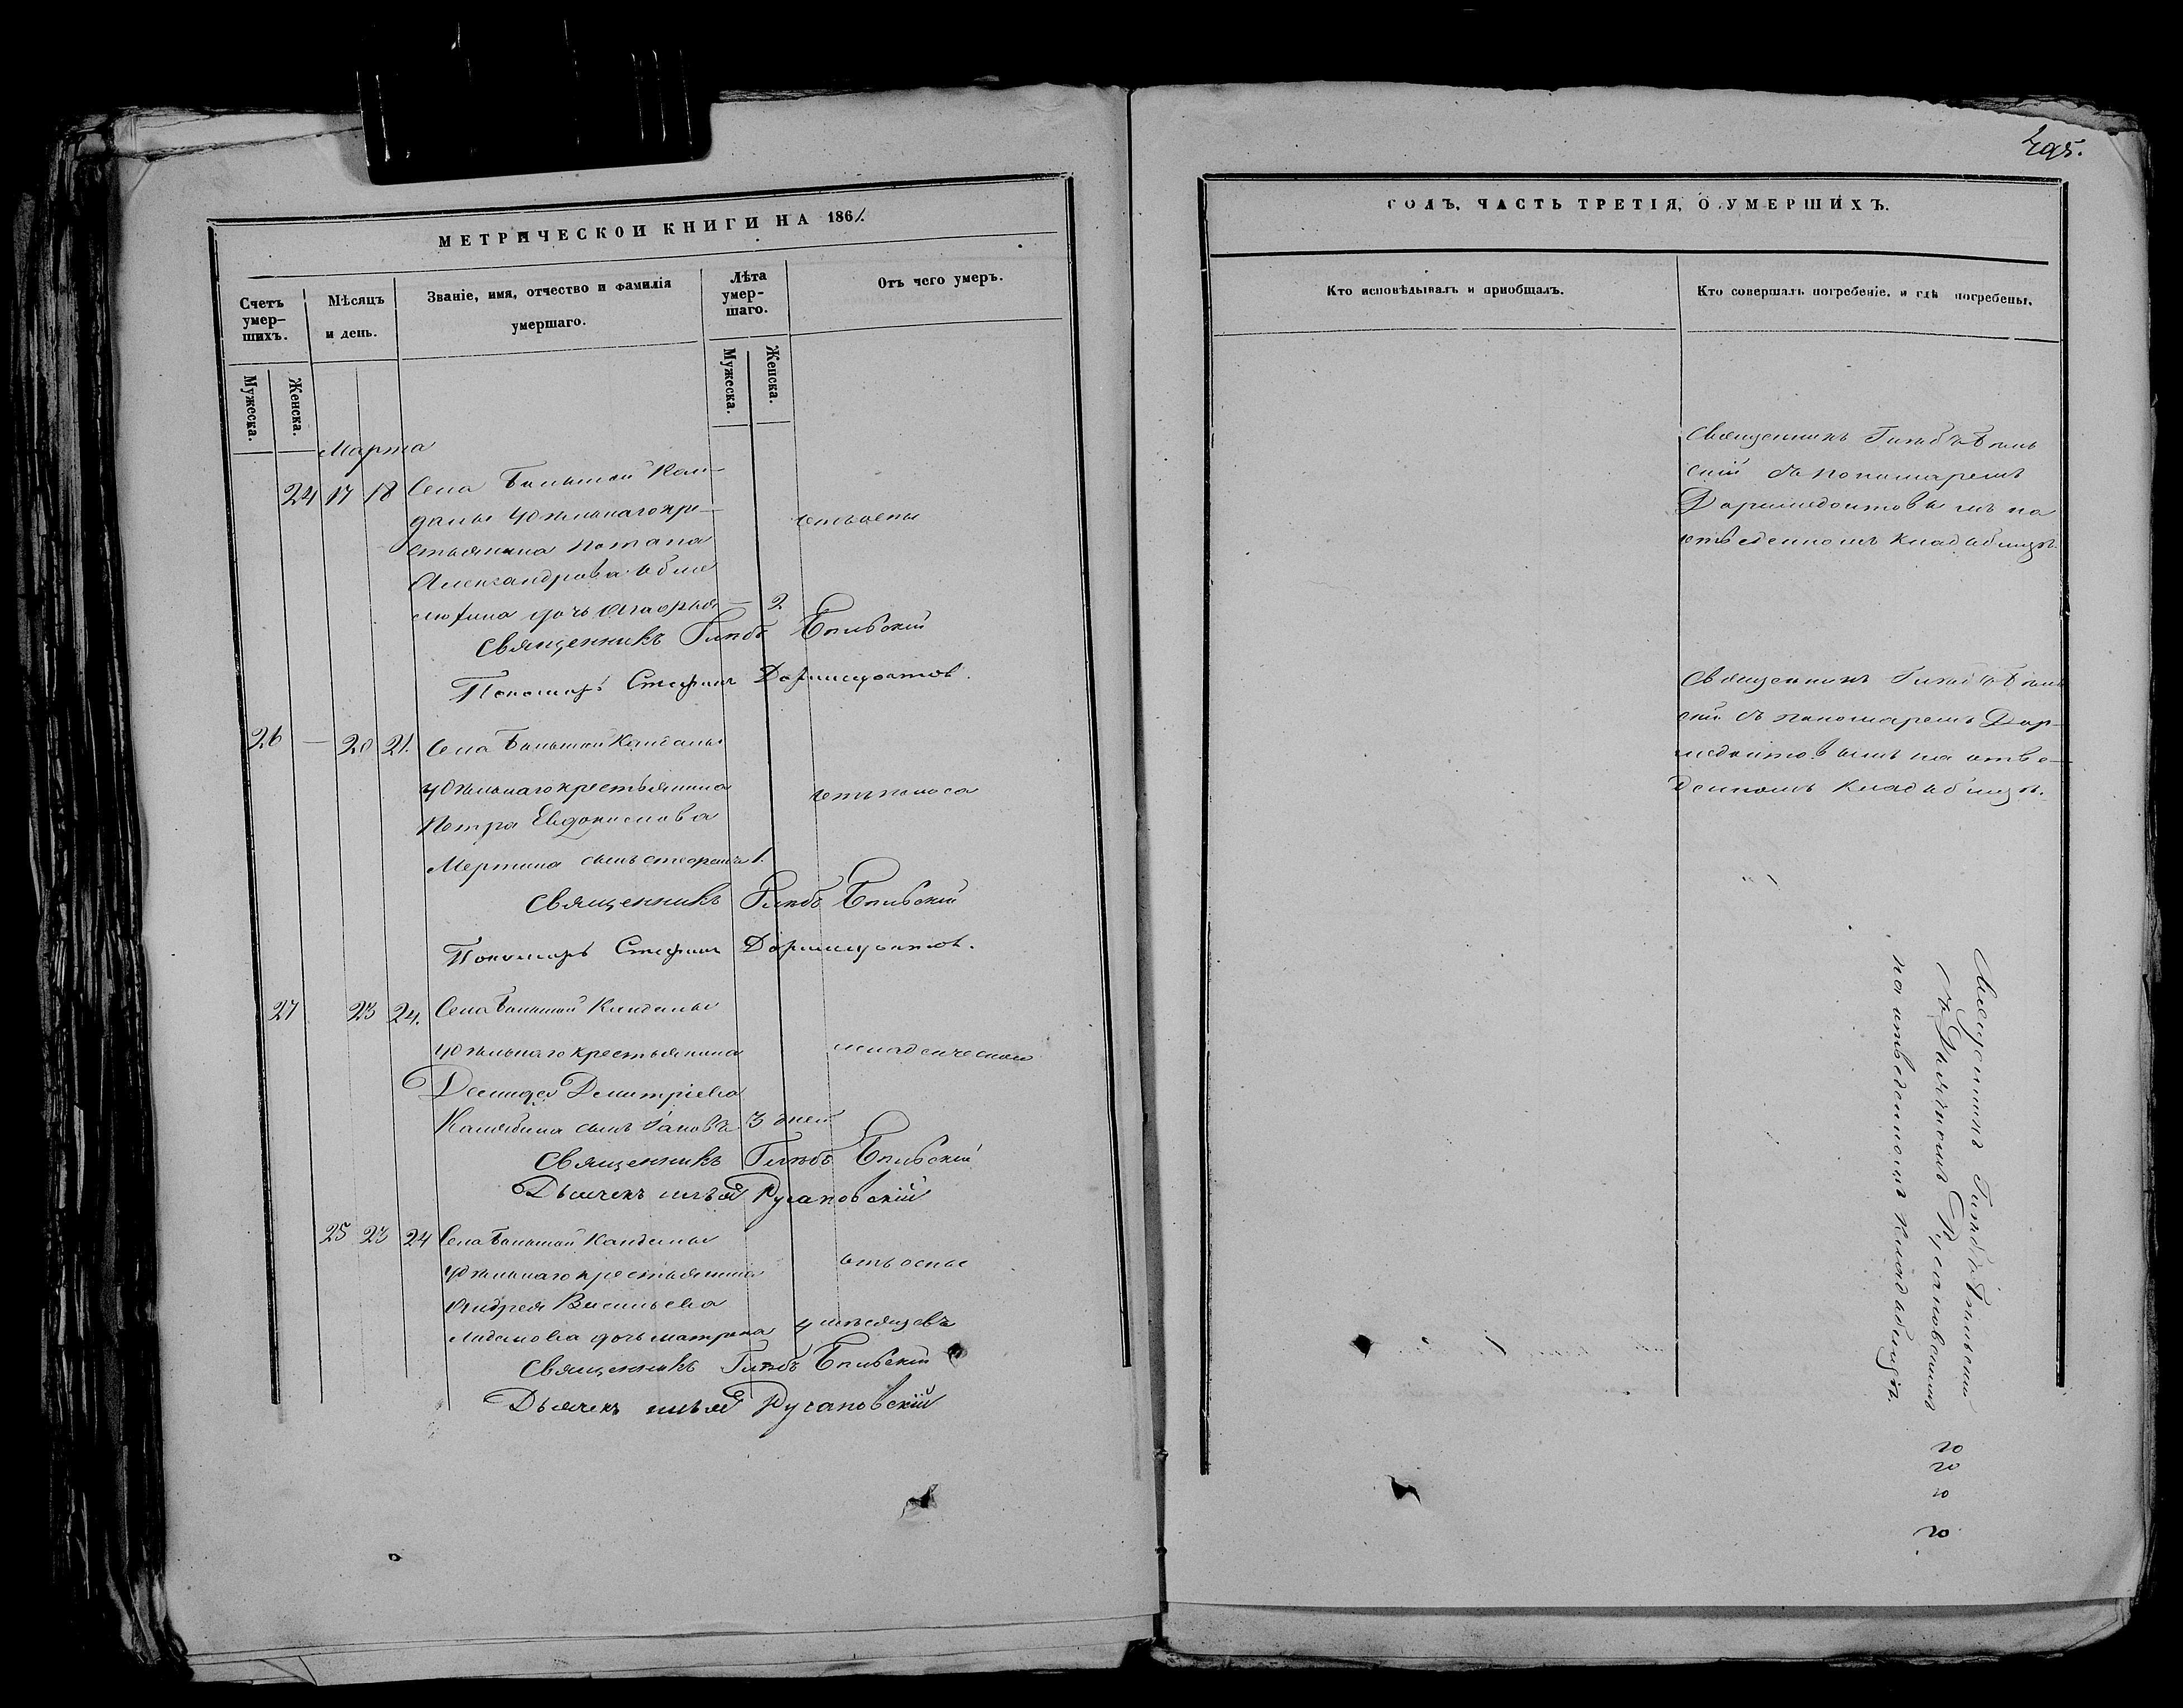 295.
МЕТРИЧЕСКОЙ КНИГИ НА 1861
Счетъ умер-шихъ.
Мѣсяцъ и день.
Званіе, имя, отчество и фамилія умершаго.
Лѣта умер-шаго.
Отъ чего умеръ.
Мужеска.
Женска.
Мужеска.
Женска.
Марта
24 17 18 Села Большой Кан-
далы Удѣльнаго кре-
отъ оспы
стьянина Потапа
Александрова
дочь 2
Священникъ Глѣбъ Бѣльскій
Пономарь Стефанъ Доримедонтовъ.
26 — 20 21. Села Большой Кандалы
удѣльнаго крестьянина
отъ поноса
Петра Евдокимова
сынъ 1.
Священникъ Глѣбъ Бѣльскій
Пономарь Стефанъ Доримедонтовъ.
27 23 24. Села Большой Кандалы
удѣльнаго крестьянина
младенческой
Демида Димитріева
сынъ Іаковъ 3 дней
Священникъ Глѣбъ Бѣльскій
Дьячекъ Русановскій
25 23 24 Села Большой Кандалы
отъ оспы
удѣльнаго крестьянина
Андрея Васильева
дочь Матрона 4 мѣсяцевъ
Священникъ Глѣбъ Бѣльскій
Дьячекъ Русановскій
ГОДЪ, ЧАСТЬ ТРЕТІЯ, О УМЕРШИХЪ.
Кто исповѣдывалъ и пріобщалъ.
Кто совершалъ погребеніе, и гдѣ погребены.
Священникъ Глѣбъ Бѣль
скій съ пономаремъ
Доримедонтовымъ на
отведенномъ кладбищѣ.
Священникъ Глѣбъ Бѣль
скій съ пономаремъ Дор-
медонтовымъ на отве-
денномъ кладбищѣ.
Священникъ Глѣбъ Бѣльскій
съ Дьячкомъ Русановскимъ
на отведенномъ кладбищѣ.